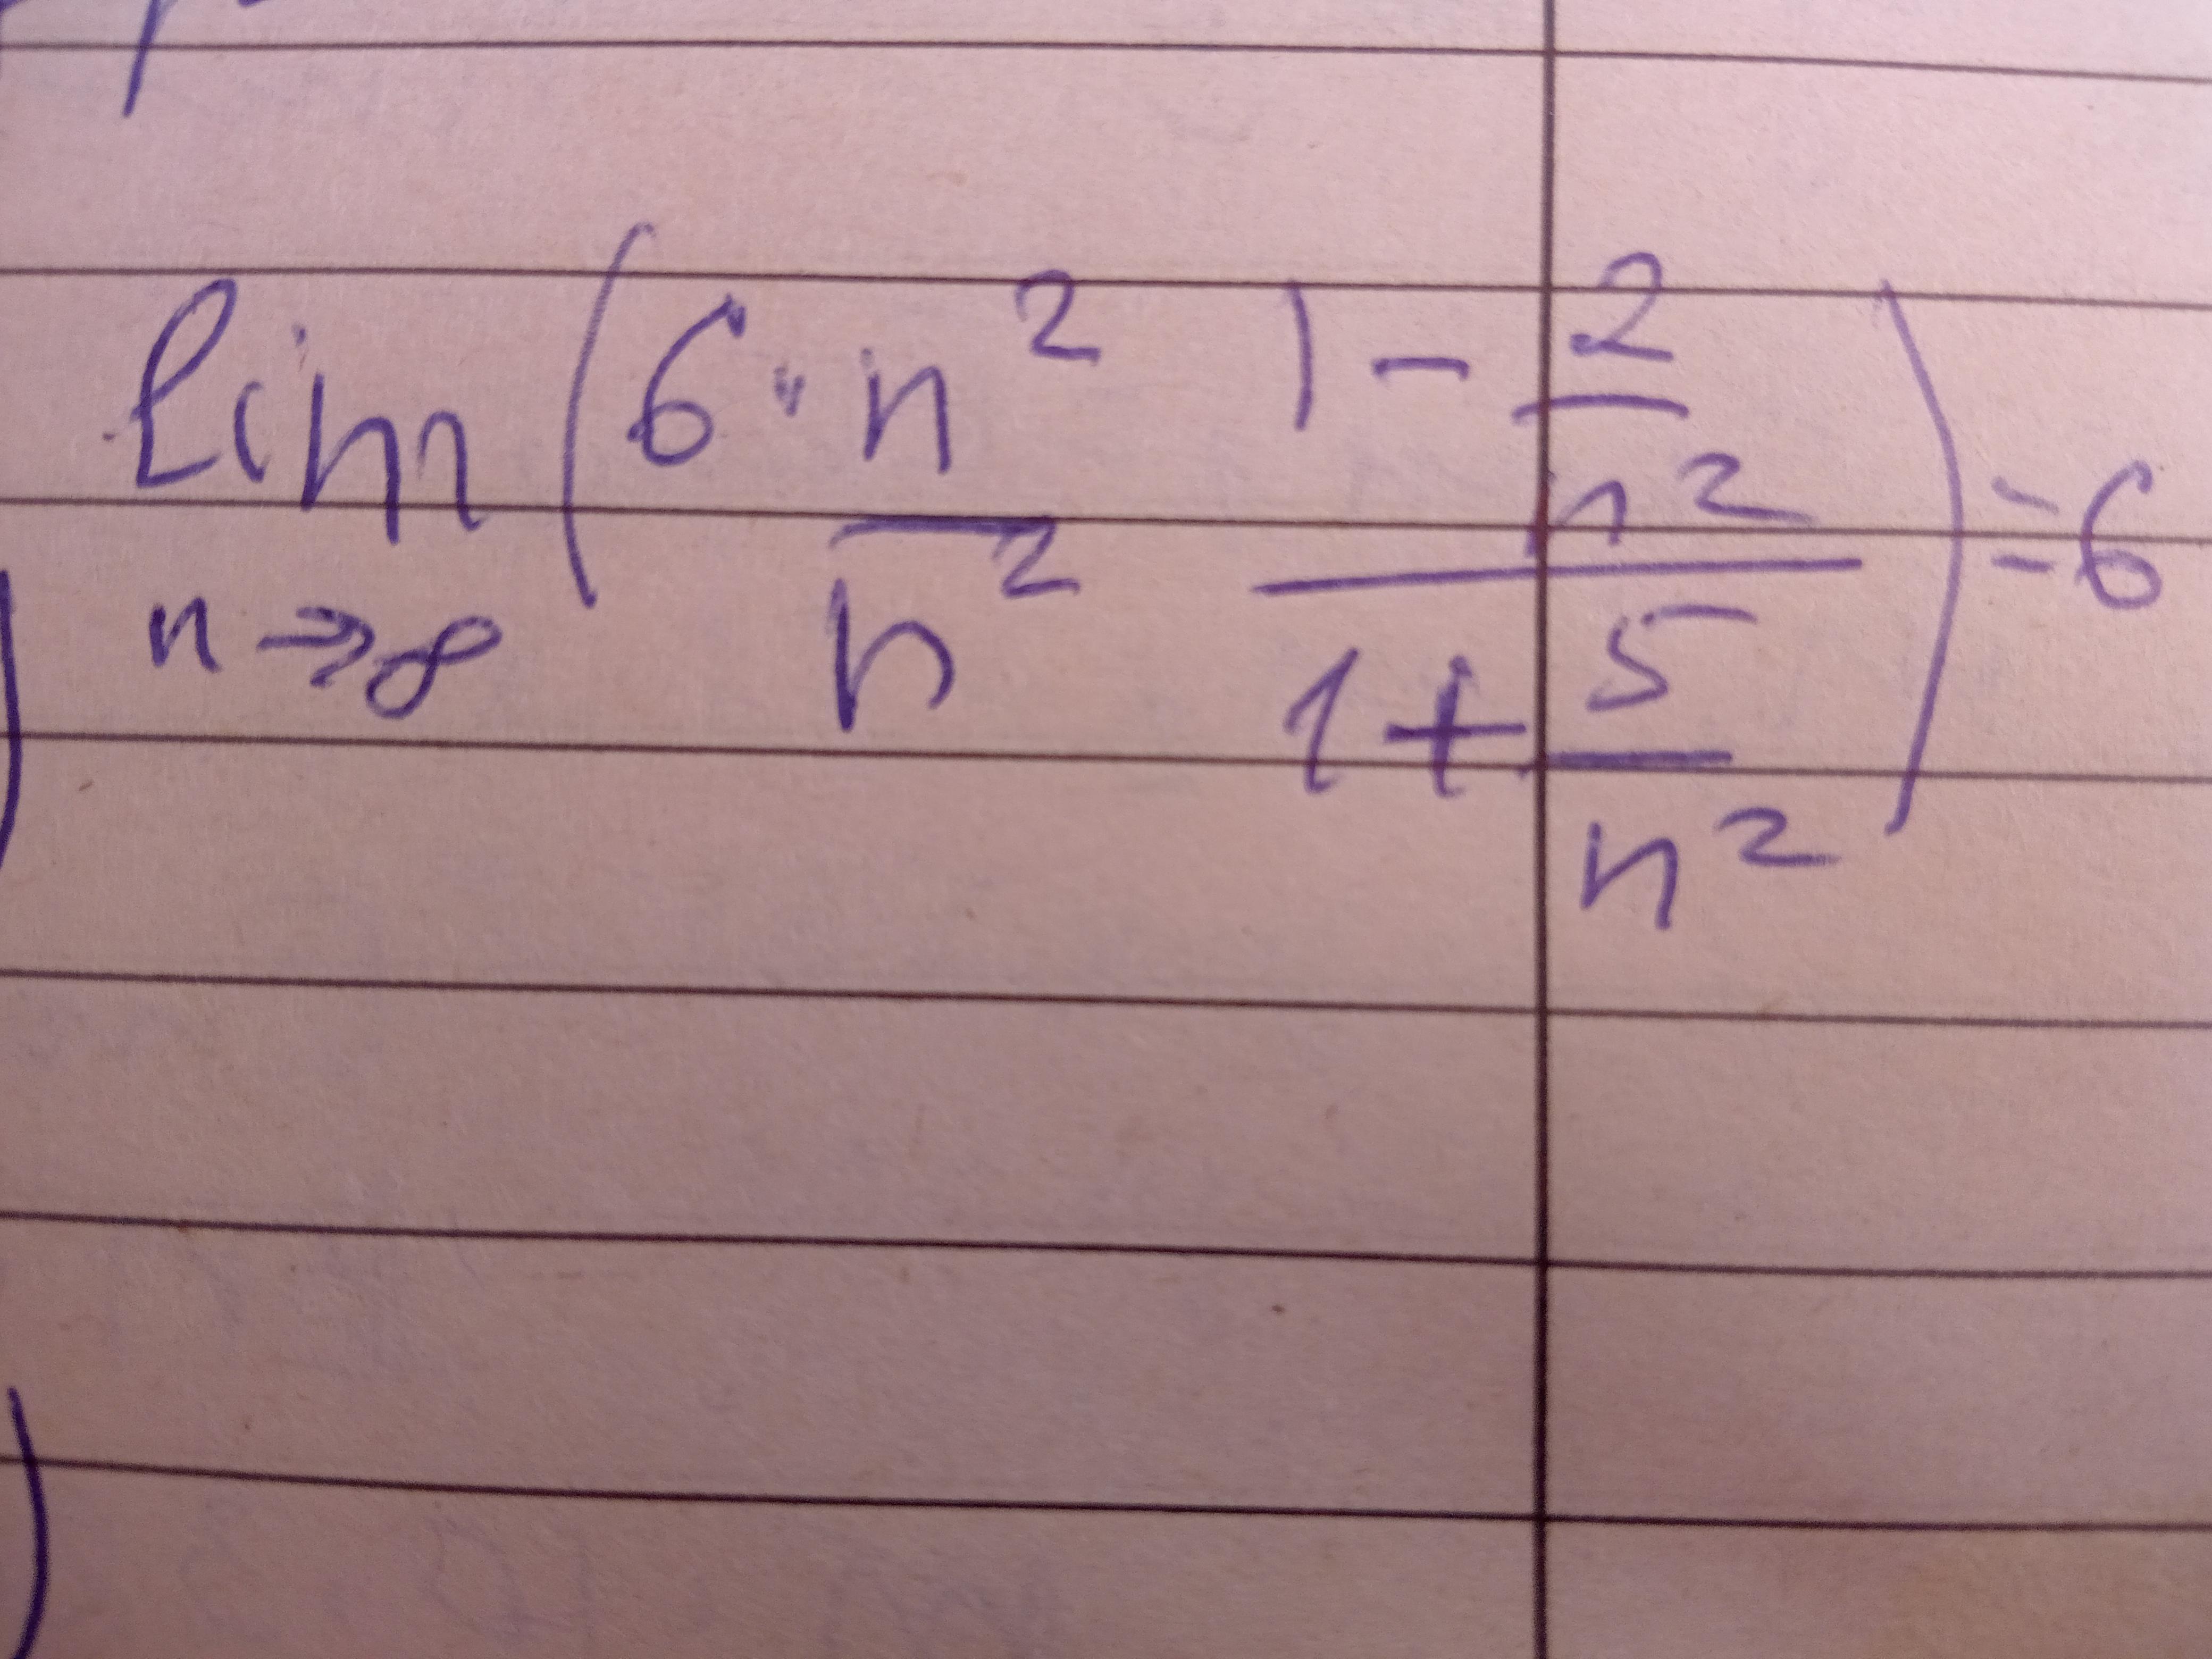 lim n→∞ (6 · n²/n² (1 - 2/n²)/(1 + 5/n²)) = 6